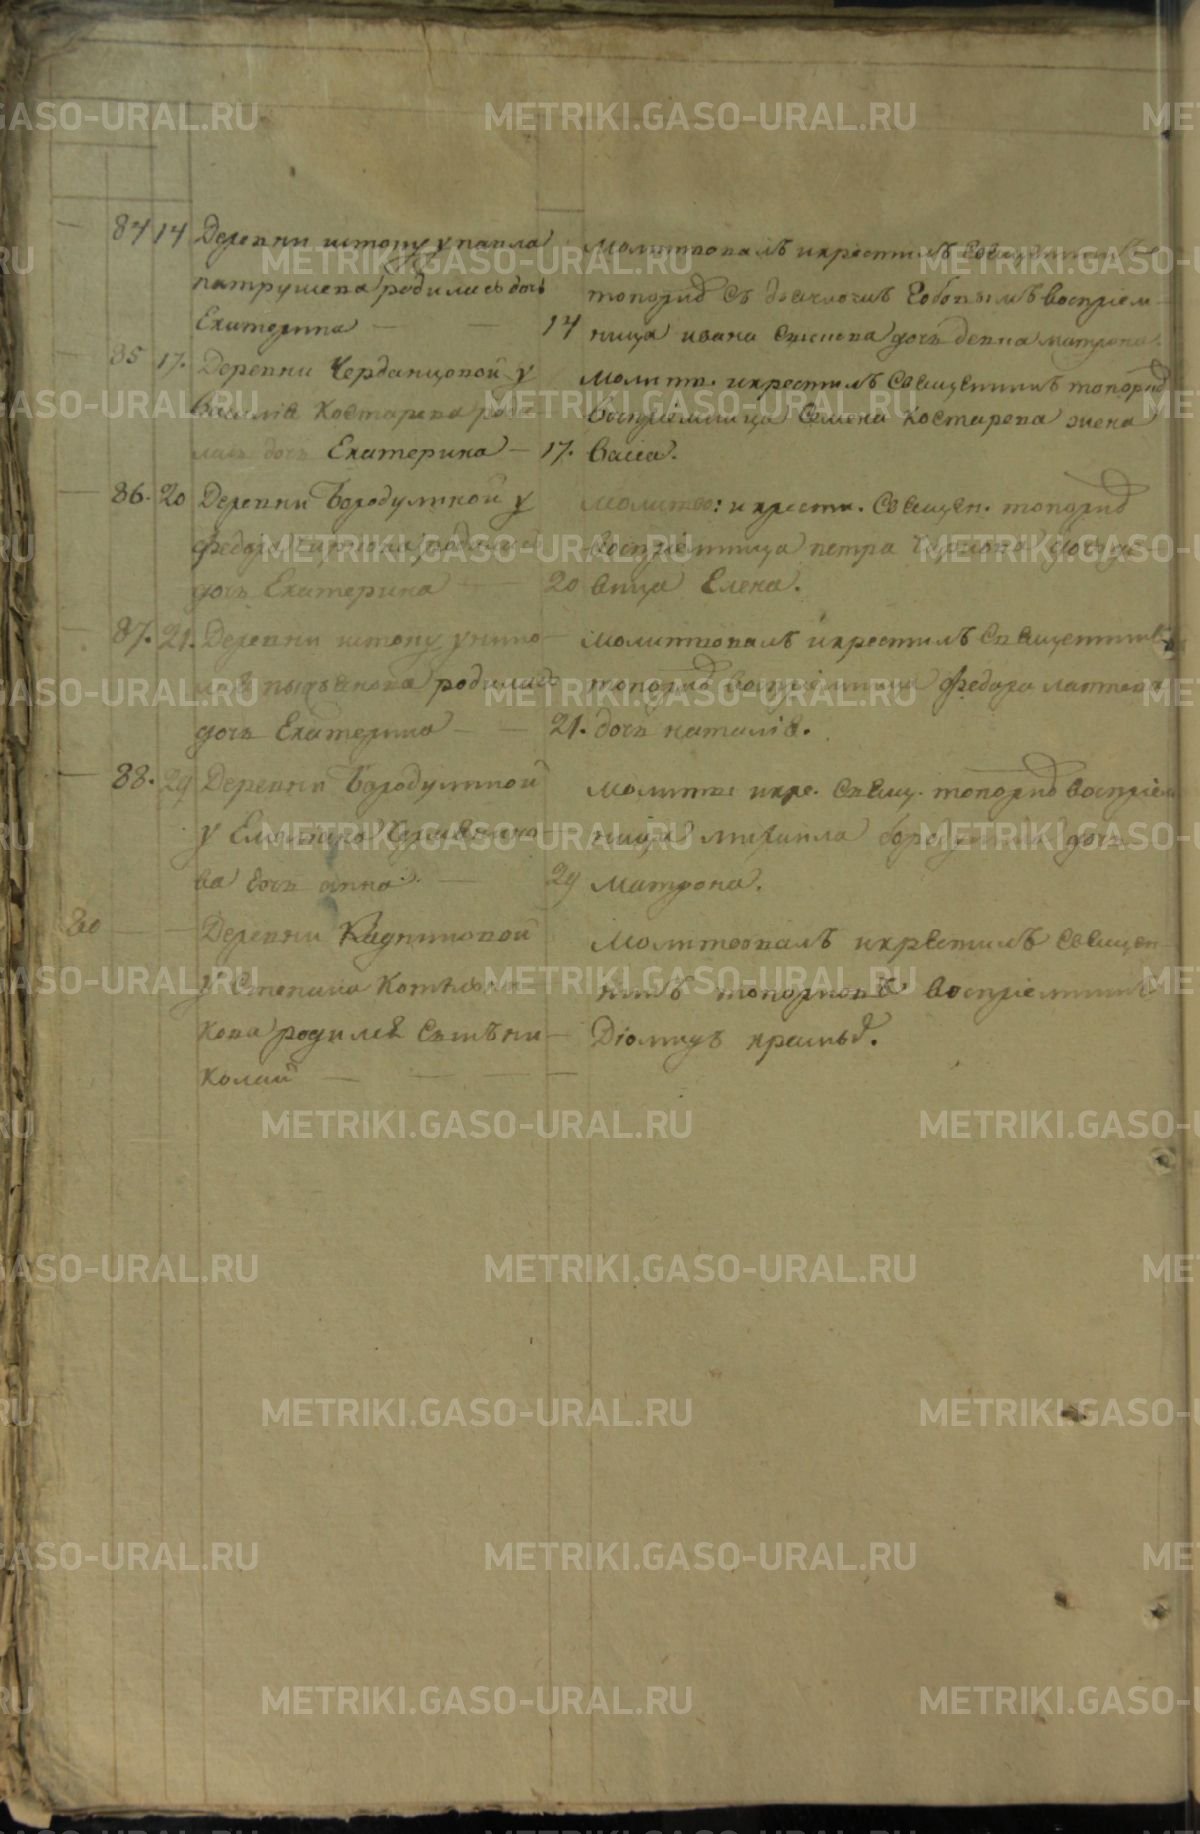 84 14 Деревни штопу у павла
патрушева родилась дочь
Екатерина — — 14
молитвовалъ и крестилъ священникъ
топорковъ съ дьячкомъ воспріем-
ница ивана дочь девка матрона
85 17. Деревни Черданцовой у
василія Костарева роди-
лась дочь Екатерина — 17.
молитв. и крестилъ священникъ топорковъ
воспріемница Семена Костарева жена
васса.
86. 20 Деревни Бородулиной у
федора родилась
дочь Екатерина — 20
молитво: и крести. священ. топорковъ
воспріемница петра дочь де-
вица Елена.
87. 21. Деревни штопу у нико-
лая родилась
дочь Екатерина — — 21.
молитвовалъ и крестилъ священникъ
топорковъ воспріемница федора лаптева
дочь наталія.
88. 29 Деревни Бородулиной
у
ва дочь анна. — 29
молитв: и кре. свящ. топорковъ воспріем-
ница михаила бородулина дочь
матрона.
80 — — Деревни Кадниковой
у Степана Котельни-
кова родился сынъ ни-
колай — — — —
молитвовалъ и крестилъ священ-
никъ топорковъ воспріемникъ
Діомидъ
METRIKI.GASO-URAL.RU